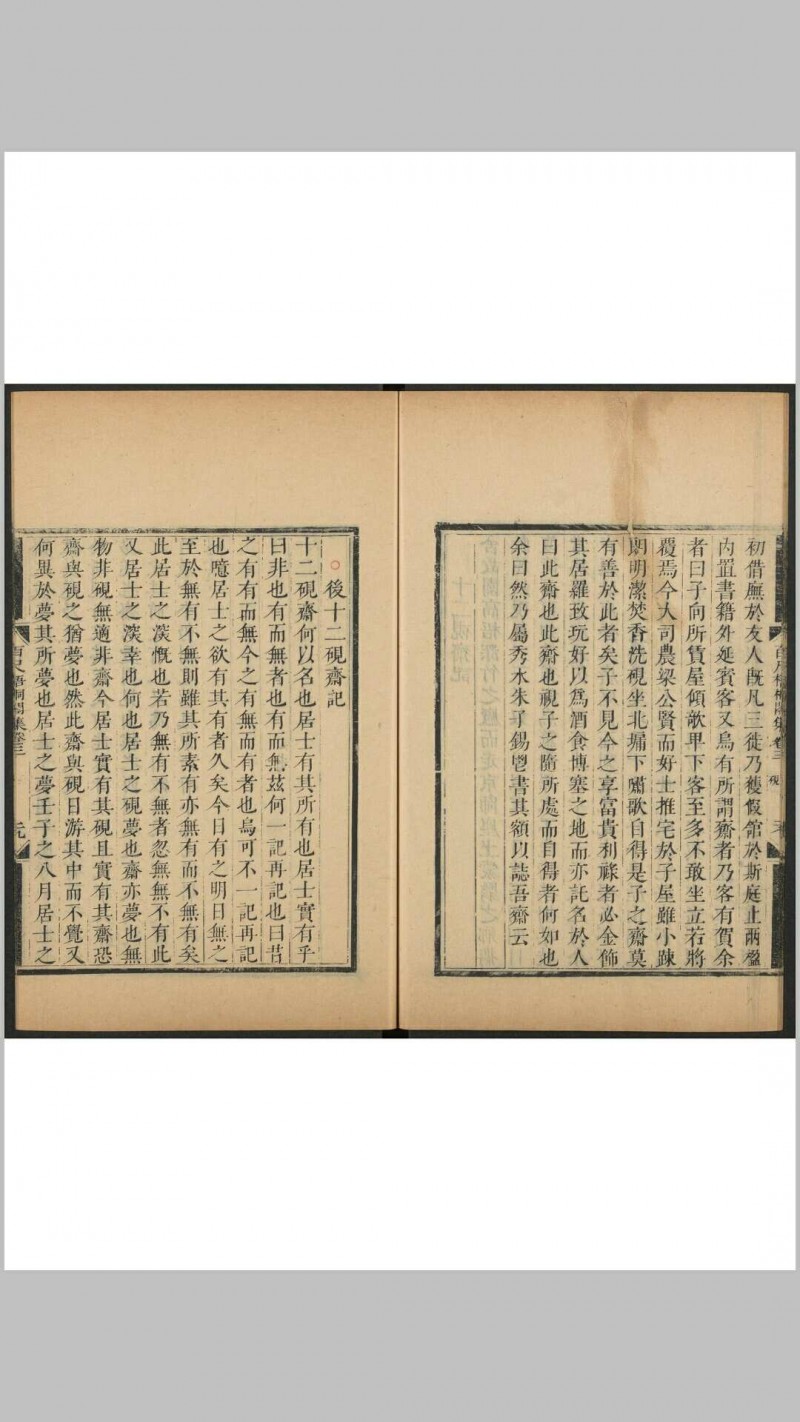 初借廡於友人既凡三徙乃獲假館於斯庭止兩楹
內置書籍外延賓客又烏有所謂齋者乃客有賀余
者曰子向所賃屋傾欹卑下客至多不敢坐立若將
覆焉今大司農梁公賢而好士推宅於子屋雖小疎
朗明潔焚香洗硯坐北墉下嘯歌自得是子之齋莫
有善於此者矣子不見今之享富貴利祿者必金飾
其居羅致玩好以為酒食博塞之地而亦託名於人
曰此齋也此齋也視子之隨所處而自得者何如也
余曰然乃屬秀水朱子錫鬯書其額以誌吾齋云
後十二硯齋記
十二硯齋何以名也居士有其所有也居士實有乎
曰非也有而無者也有而無玆何一記再記也曰昔
之有有而無今之有無而有者也烏可不一記再記
也噫居士之欲有其有者久矣今日有之明日無之
至於無有不無則雖其所素有亦無有而不無有矣
此居士之深慨也若乃無有不無者忽無無不有此
又居士之深幸也何也居士之硯夢也齋亦夢也無
物非硯無適非齋今居士實有其硯且實有其齋恐
齋與硯之猶夢也然此齋與硯日游其中而不覺又
何異於夢其所夢也居士之夢壬子之八月居士之
百尺梧桐閣集卷三